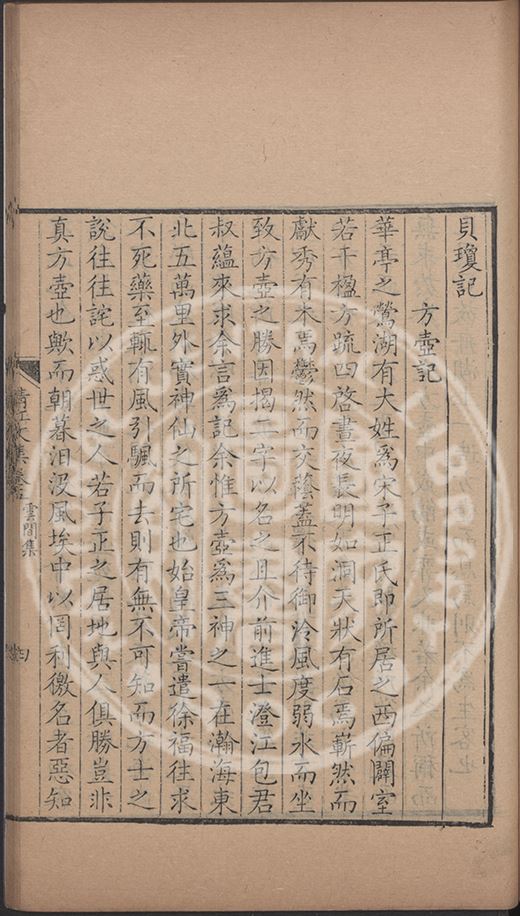 貝瓊記
方壺記
華亭之鶯湖有大姓為宋子正氏即所居之西偏闢室
若干楹方疏四啓晝夜長明如洞天狀有石焉嶄然而
獻秀有木焉鬱然而交蔭蓋不待御泠風度弱水而坐
致方壺之勝因揭二字以名之且介前進士澄江包君
叔蘊來求余言為記余惟方壺為三神之一在瀚海東
北五萬里外實神仙之所宅也始皇帝嘗遣徐福往求
不死藥至輒有風引颿而去則有無不可知而方士之
說往往詫以惑世之人若子正之居地與人俱勝豈非
真方壺也歟而朝暮汨沒風埃中以罔利徼名者惡知
清江文集 雲間集